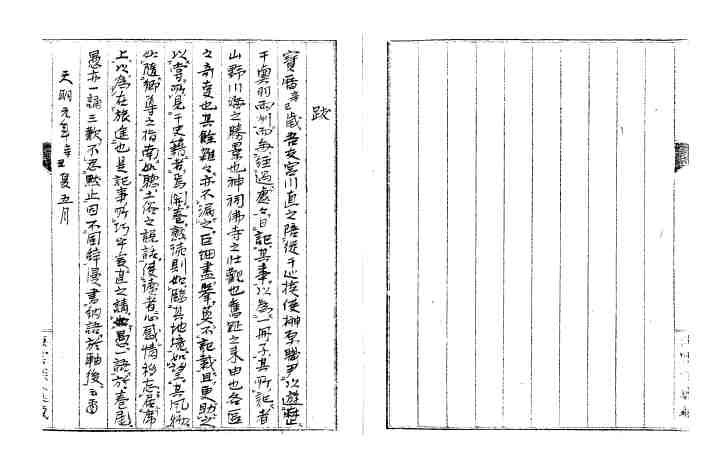 跋
寶暦辛巳歳吾友宮川直之陪從于巡按使榊原職尹以遊歴
于奧羽両州而毎經過處々日記其事以為一冊子其所記者
山野川海之勝景也神祠佛寺之壮觀也舊趾之来由也各區
之奇麦也其餘雖々亦不漏之巨細盡挙莫不記載且更助之
以嘗所見于史籍者為開巻熟読則如臨其地境如望其風俗
如隨郷導之指南如聽土俗之説話使讀者心感情移志居席
上以為在旅進也是記事所巧乎直之請愚一語於巻尾
愚亦一誦三歎不忍黙止因不固辞漫書納語於軸後云爾
天明元年辛丑夏五月